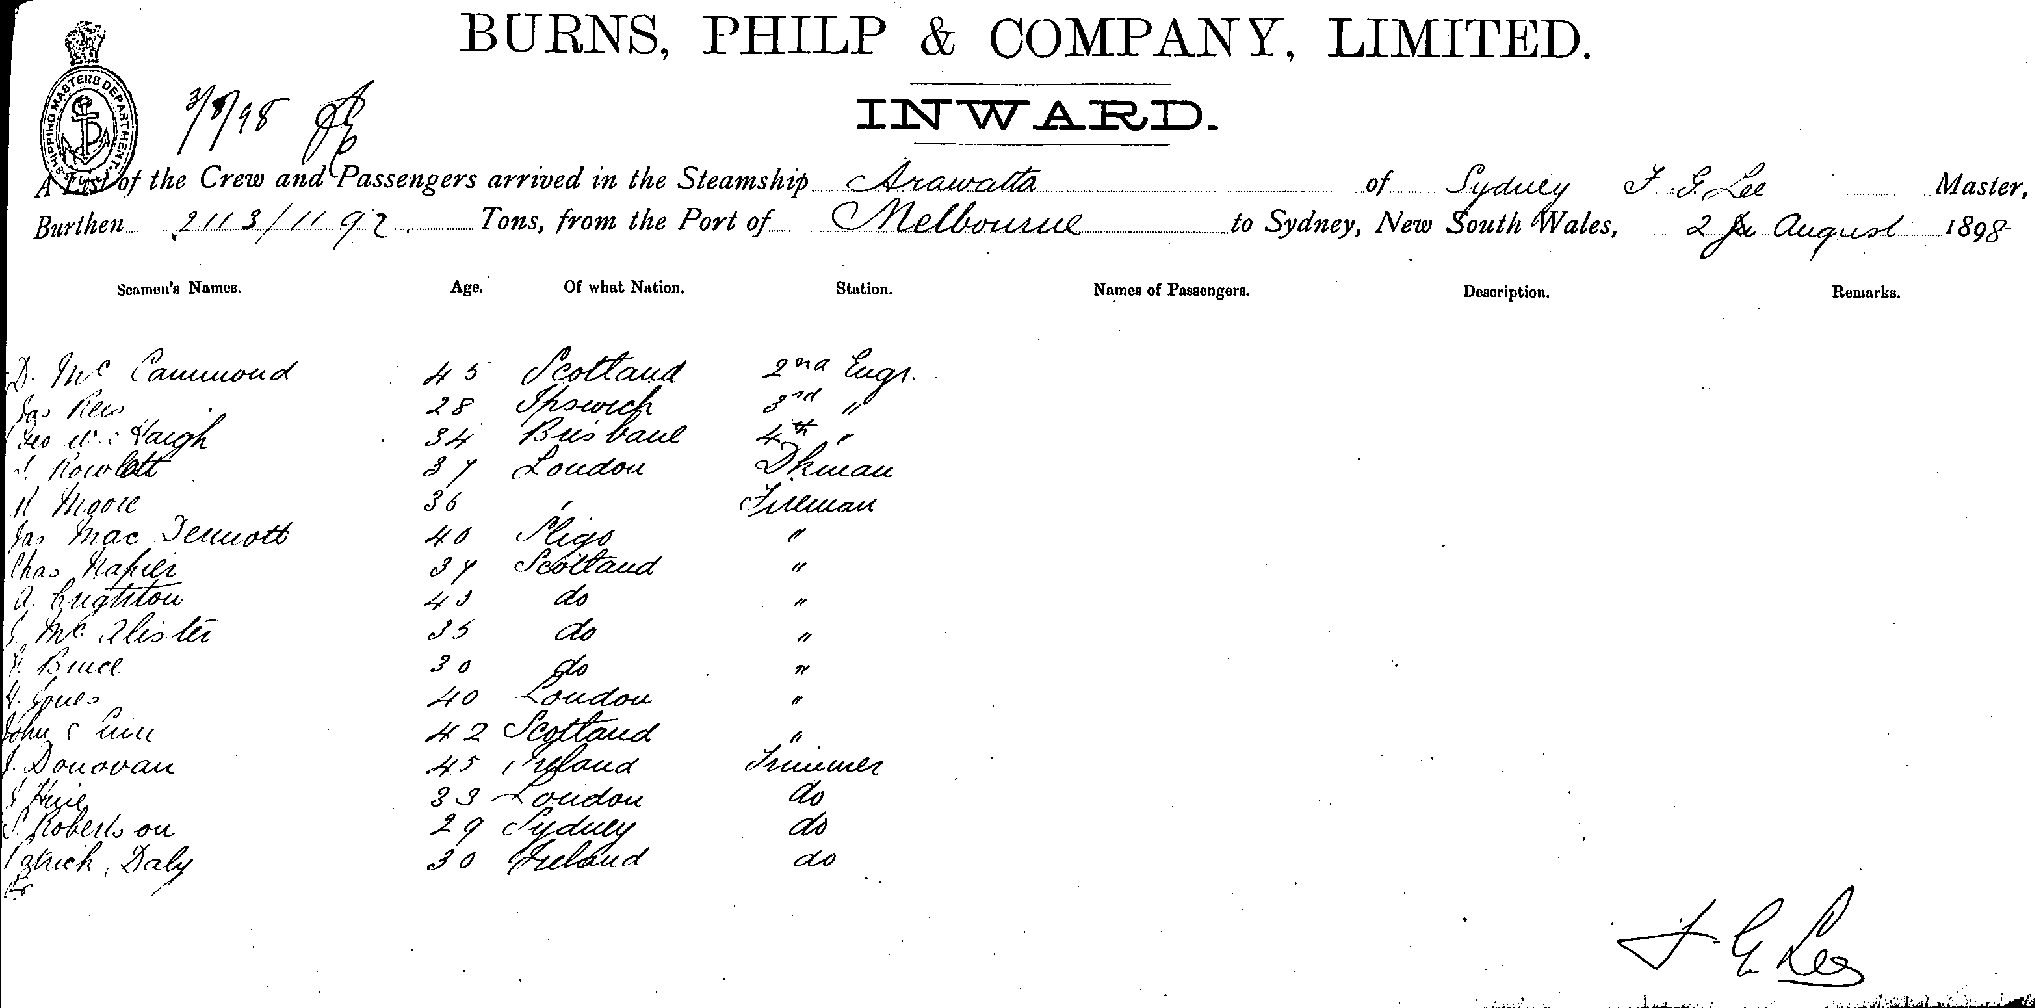 BURNS, PHILP & COMPANY, LIMITED.
INWARD.
SHIPPING MASTERS DEPARTMENT
3/8/98
A List of the Crew and Passengers arrived in the Steamship Arawatta of Sydney F. G. Lee Master,
Burthen 2113/1192 Tons, from the Port of Melbourne to Sydney, New South Wales, 2 August 1898
Seamen's Names. Age. Of what Nation. Station. Names of Passengers. Description. Remarks.
D. Mc Cammond 45 Scotland 2nd Engr.
Jas Rees 28 Ipswich 3rd "
Geo W. Haigh 34 Brisbane 4th "
Rowlett 37 London Dkman
H Moore 36 " Fireman
Jas Mac Dermott 40 Sligo "
Chas Napier 37 Scotland "
A. Crighton 43 do "
Mc Alister 35 do "
Bruce 30 do "
Jones 40 London "
John 42 Scotland "
J. Donovan 45 Ireland Trimmer
33 London do
Robertson 29 Sydney do
Patrick Daly 30 Ireland do
F G Lee